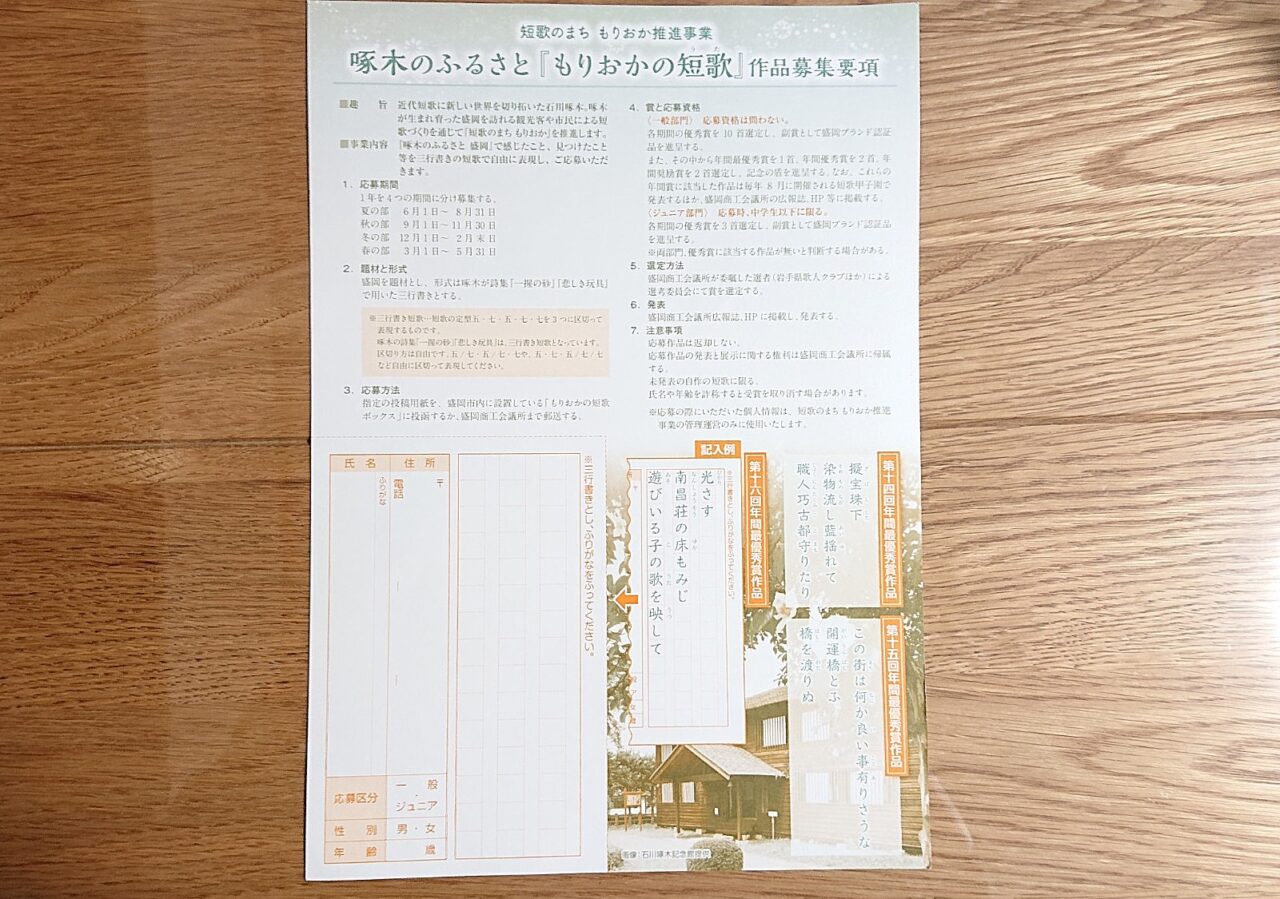 短歌のまち もりおか推進事業
啄木のふるさと『もりおかの短歌』作品募集要項
うた
■趣　旨　近代短歌に新しい世界を切り拓いた石川啄木。啄木
が生まれ育った盛岡を訪れる観光客や市民による短
歌づくりを通じて「短歌のまち もりおか」を推進します。
■事業内容　『啄木のふるさと 盛岡』で感じたこと、見つけたこと
等を三行書きの短歌で自由に表現し、ご応募いただ
きます。
1．応募期間
1年を4つの期間に分け募集する。
夏の部　6月1日〜 8月31日
秋の部　9月1日〜11月30日
冬の部　12月1日〜 2月末日
春の部　3月1日〜 5月31日
2．題材と形式
盛岡を題材とし、形式は啄木が詩集『一握の砂』『悲しき玩具』
で用いた三行書きとする。
※三行書き短歌…短歌の定型五・七・五・七・七を3つに区切って
表現するものです。
啄木の詩集『一握の砂』『悲しき玩具』は、三行書き短歌となっています。
区切り方は自由です。五/七・五/七・七や、五・七・五/七/七
など自由に区切って表現してください。
3．応募方法
指定の投稿用紙を、盛岡市内に設置している「もりおかの短歌
ボックス」に投函するか、盛岡商工会議所まで郵送する。
4．賞と応募資格
〈一般部門〉 応募資格は問わない。
各期間の優秀賞を10首選定し、副賞として盛岡ブランド認証
品を進呈する。
また、その中から年間最優秀賞を1首、年間優秀賞を2首、年
間奨励賞を2首選定し、記念の盾を進呈する。なお、これらの
年間賞に該当した作品は毎年8月に開催される短歌甲子園で
発表するほか、盛岡商工会議所の広報誌、HP等に掲載する。
〈ジュニア部門〉 応募時、中学生以下に限る。
各期間の優秀賞を3首選定し、副賞として盛岡ブランド認証品
を進呈する。
※両部門、優秀賞に該当する作品が無いと判断する場合がある。
5．選定方法
盛岡商工会議所が委嘱した選者（岩手県歌人クラブほか）による
選考委員会にて賞を選定する。
6．発表
盛岡商工会議所広報誌、HPに掲載し、発表する。
7．注意事項
応募作品は返却しない。
応募作品の発表と展示に関する権利は盛岡商工会議所に帰属
する。
未発表の自作の短歌に限る。
氏名や年齢を詐称すると受賞を取り消す場合があります。
※応募の際にいただいた個人情報は、短歌のまち もりおか推進
事業の管理運営のみに使用いたします。
※三行書きとし、ふりがなをふってください。
住所
〒
電話
氏名
ふりがな
応募区分
一般
・
ジュニア
性別
男・女
年齢
歳
第十四回年間最優秀賞作品
擬宝珠下
染物流し藍揺れて
職人巧古都守りたり
第十五回年間最優秀賞作品
この街は何か良い事有りさうな
開運橋とふ
橋を渡りぬ
第十六回年間最優秀賞作品
記入例
※三行書きとし、ふりがなをふってください。
光さす
南昌荘の床もみじ
遊びいる子の歌を映して
画像：石川啄木記念館提供